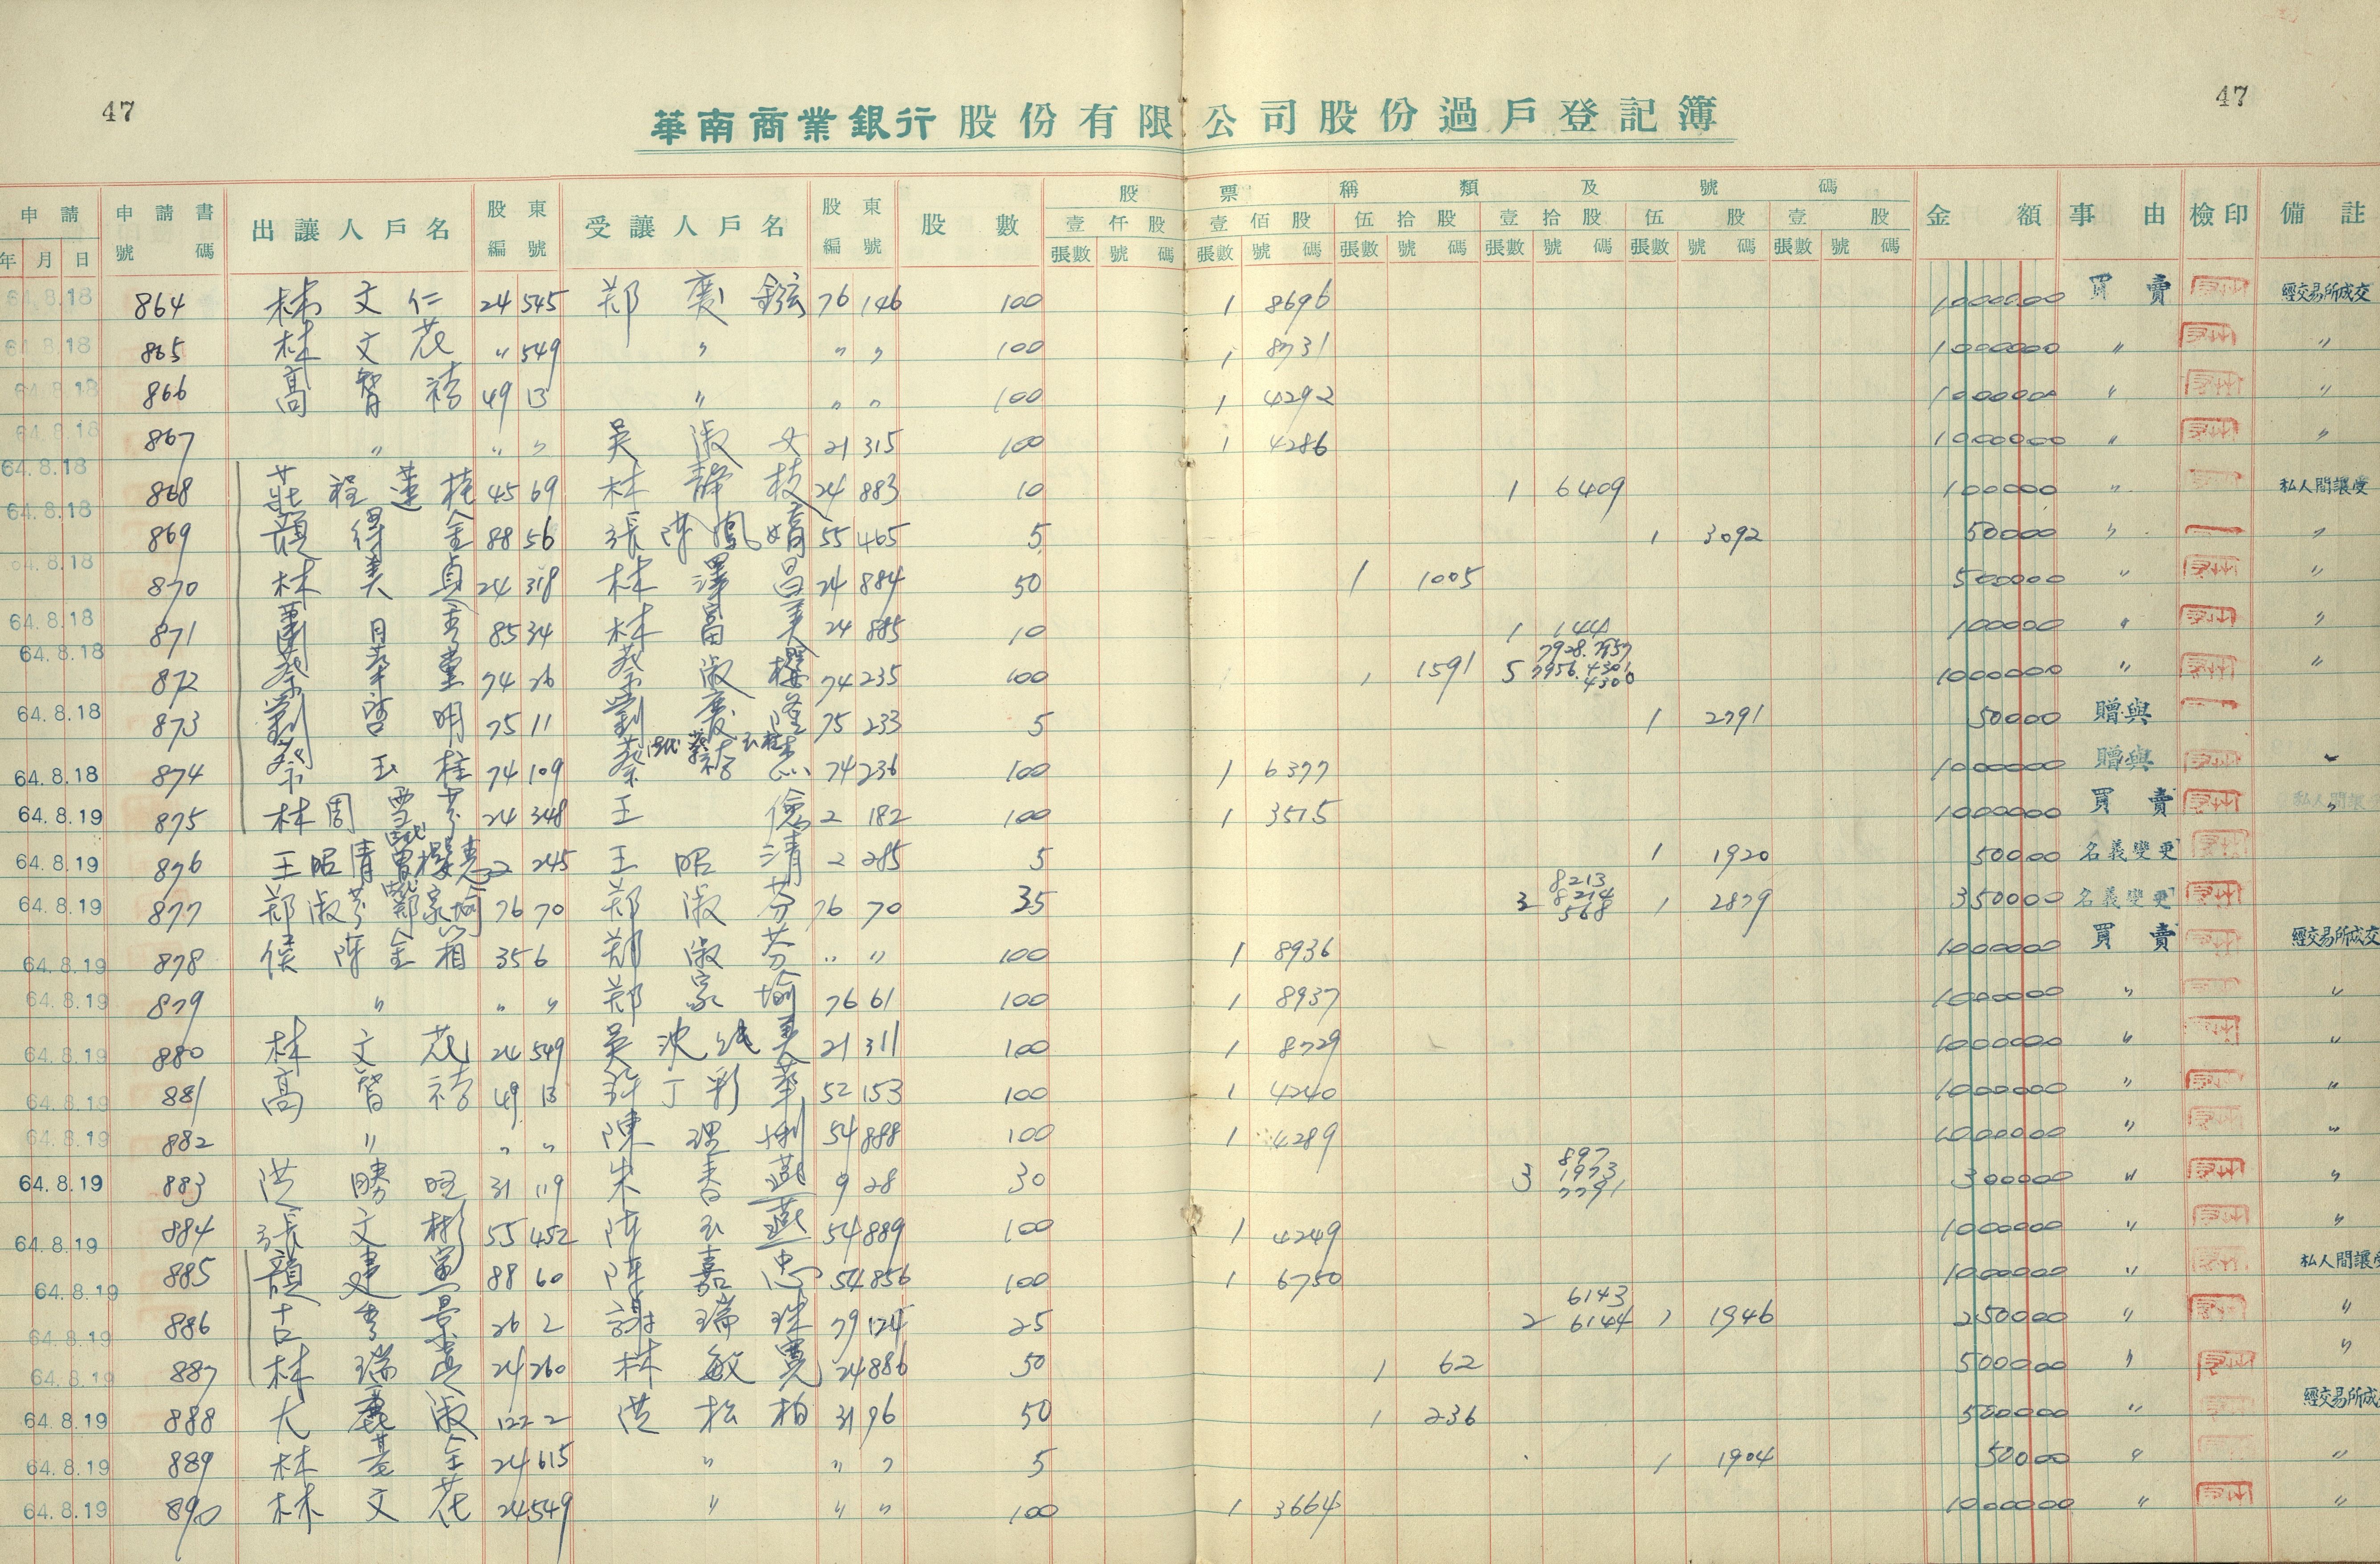 47
47
華南商業銀行股份有限公司股份過戶登記簿
申請 年 月 日 申請書號碼 出讓人戶名 股東編號 受讓人戶名 股東編號 股數 股票種類及號碼 金額 事由 檢印 備註
壹仟股 壹佰股 伍拾股 壹拾股 伍股 壹股
張數 號碼 張數 號碼 張數 號碼 張數 號碼 張數 號碼 張數 號碼
64.8.18 864 林文仁 24 545 鄭 鉉 76 146 100 1 8696 1000000 買賣 經交易所成交
64.8.18 865 林文花 〃 549 〃 〃 〃 100 1 8731 1000000 〃 〃
64.8.18 866 高智 49 13 〃 〃 〃 100 1 4292 1000000 〃 〃
64.8.18 867 〃 〃 〃 吳淑女 21 315 100 1 4286 1000000 〃 〃
64.8.18 868 莊程蓮桂 45 69 林靜枝 24 883 10 1 6409 100000 〃 私人間讓受
64.8.18 869 顏得金 88 56 張陳鳳嬌 55 465 5 1 3092 50000 〃 〃
64.8.18 870 林美貞 24 318 林澤昌 24 884 50 1 1005 500000 〃 〃
64.8.18 871 蕭月雲 85 34 林富美 24 885 10 1 144 100000 〃 〃
64.8.18 872 蔡 74 26 蔡淑櫻 74 235 100 1 1591 5 7928.7957 7956.4301 4300 1000000 〃 〃
64.8.18 873 劉啓明 75 11 劉慶隆 75 233 5 1 2791 50000 贈與
64.8.18 874 蔡玉柱 74 109 蔡 74 236 100 1 6377 1000000 贈與 〃
64.8.19 875 林周雪芬 24 348 王儉 2 182 100 1 3515 1000000 買賣 〃
64.8.19 876 王昭清 2 245 王昭清 2 285 5 1 1920 50000 名義變更
64.8.19 877 鄭淑芬 76 70 鄭淑芬 76 70 35 3 8213 8214 568 1 2879 350000 名義變更
64.8.19 878 侯陳金相 35 6 鄭淑芬 〃 〃 100 1 8936 1000000 買賣 經交易所成交
64.8.19 879 〃 〃 〃 鄭家瑜 76 61 100 1 8937 1000000 〃 〃
64.8.19 880 林文花 24 549 吳沈 美 21 311 100 1 8729 1000000 〃 〃
64.8.19 881 高智 49 13 許丁彩華 52 153 100 1 4240 1000000 〃 〃
64.8.19 882 〃 〃 〃 陳理 54 888 100 1 4289 1000000 〃 〃
64.8.19 883 洪勝旺 31 119 朱春燕 9 28 30 3 897 1973 7791 300000 〃 〃
64.8.19 884 張文彬 55 452 陳玉燕 54 889 100 1 4249 1000000 〃 〃
64.8.19 885 顏建 88 60 陳嘉忠 54 856 100 1 6750 1000000 〃 私人間讓受
64.8.19 886 古秀景 26 2 謝瑞珠 79 124 25 2 6143 6144 1 1946 250000 〃 〃
64.8.19 887 林瑞 24 260 林敏寬 24 886 50 1 62 500000 〃 〃
64.8.19 888 尤麗淑 122 2 洪松柏 31 96 50 1 236 500000 〃 經交易所成交
64.8.19 889 林 金 24 615 〃 〃 〃 5 1 1904 50000 〃 〃
64.8.19 890 林文花 24 549 〃 〃 〃 100 1 3664 1000000 〃 〃